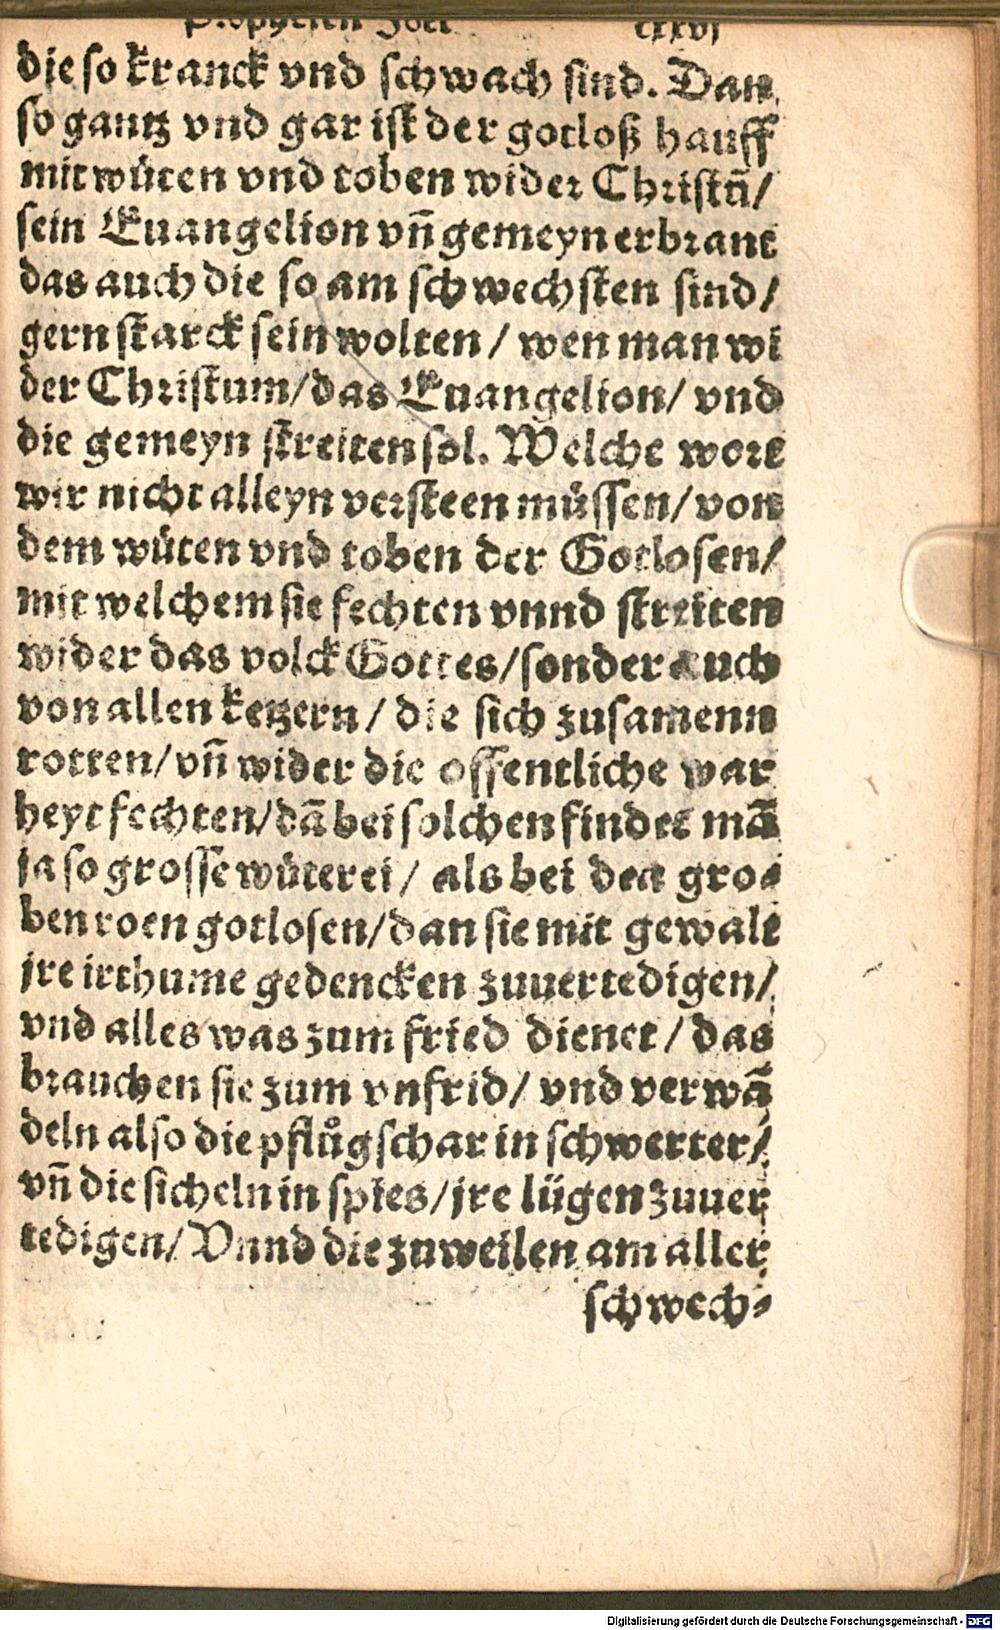 Propheten Joel cxxvj
die so kranck vnd schwach sind. Dan
so gantz vnd gar ist der gotloß hauff
mit wüten vnd toben wider Christũ/
sein Euangelion vñ gemeyn erbrant
das auch die so am schwechsten sind/
gern starck sein wolten / wen man wi
der Christum/das Euangelion/ vnd
die gemeyn streiten sol. Welche wort
wir nicht alleyn versteen müssen/von
dem wüten vnd toben der Gotlosen/
mit welchem sie fechten vnnd streiten
wider das volck Gottes/sonder auch
von allen ketzern / die sich zusamenn
rotten/vñ wider die offentliche war
heyt fechten/dã bei solchen findet mã
ja so grosse wüterei / als bei den gro⸗
ben roen gotlosen/dan sie mit gewalt
jre irthume gedencken zuuertedigen/
vnd alles was zum fried dienet / das
brauchen sie zum vnfrid/ vnd verwã
deln also die pflůgschar in schwerter/
vñ die sicheln in spies/jre lügen zuuer
tedigen/ Vnnd die zuweilen am aller
schwech⸗
Digitalisierung gefördert durch die Deutsche Forschungsgemeinschaft - DFG